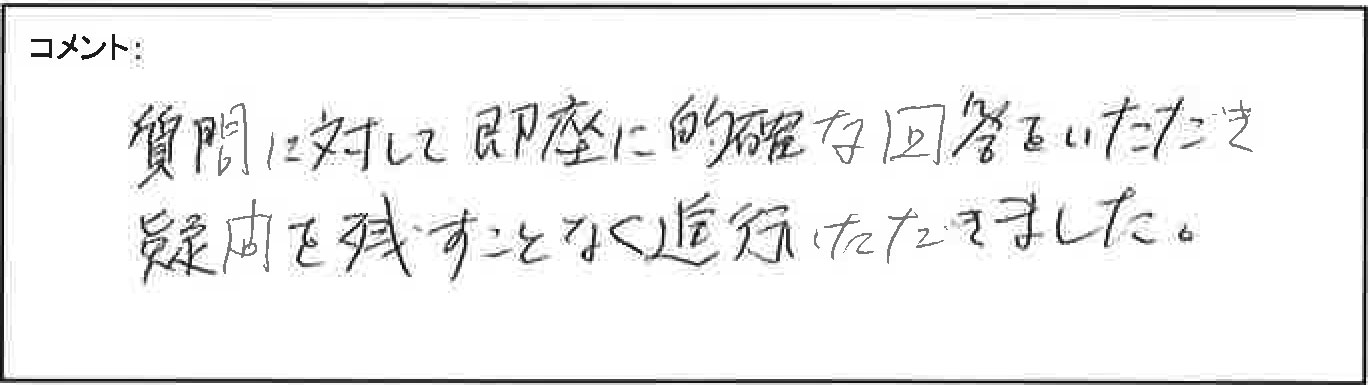 コメント:
質問に対して即座に的確な回答をいただき
疑問を残すことなく進行いただきました。